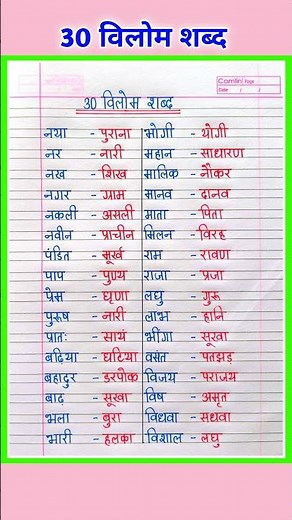 30 विलोम शब्द
Camlin Page
Date / /
30 विलोम शब्द
नया - पुराना भोगी - योगी
नर - नारी महान - साधारण
नख - शिख मालिक - नौकर
नगर - ग्राम मानव - दानव
नकली - असली माता - पिता
नवीन - प्राचीन मिलन - विरह
पंडित - मूर्ख राम - रावण
पाप - पुण्य राजा - प्रजा
प्रेम - घृणा लघु - गुरू
पुरुष - नारी लाभ - हानि
प्रातः - सायं भींगा - सूखा
बढ़िया - घटिया वसंत - पतझड़
बहादुर - डरपोक विजय - पराजय
बाढ़ - सूखा विष - अमृत
भला - बुरा विधवा - सधवा
भारी - हलका विशाल - लघु